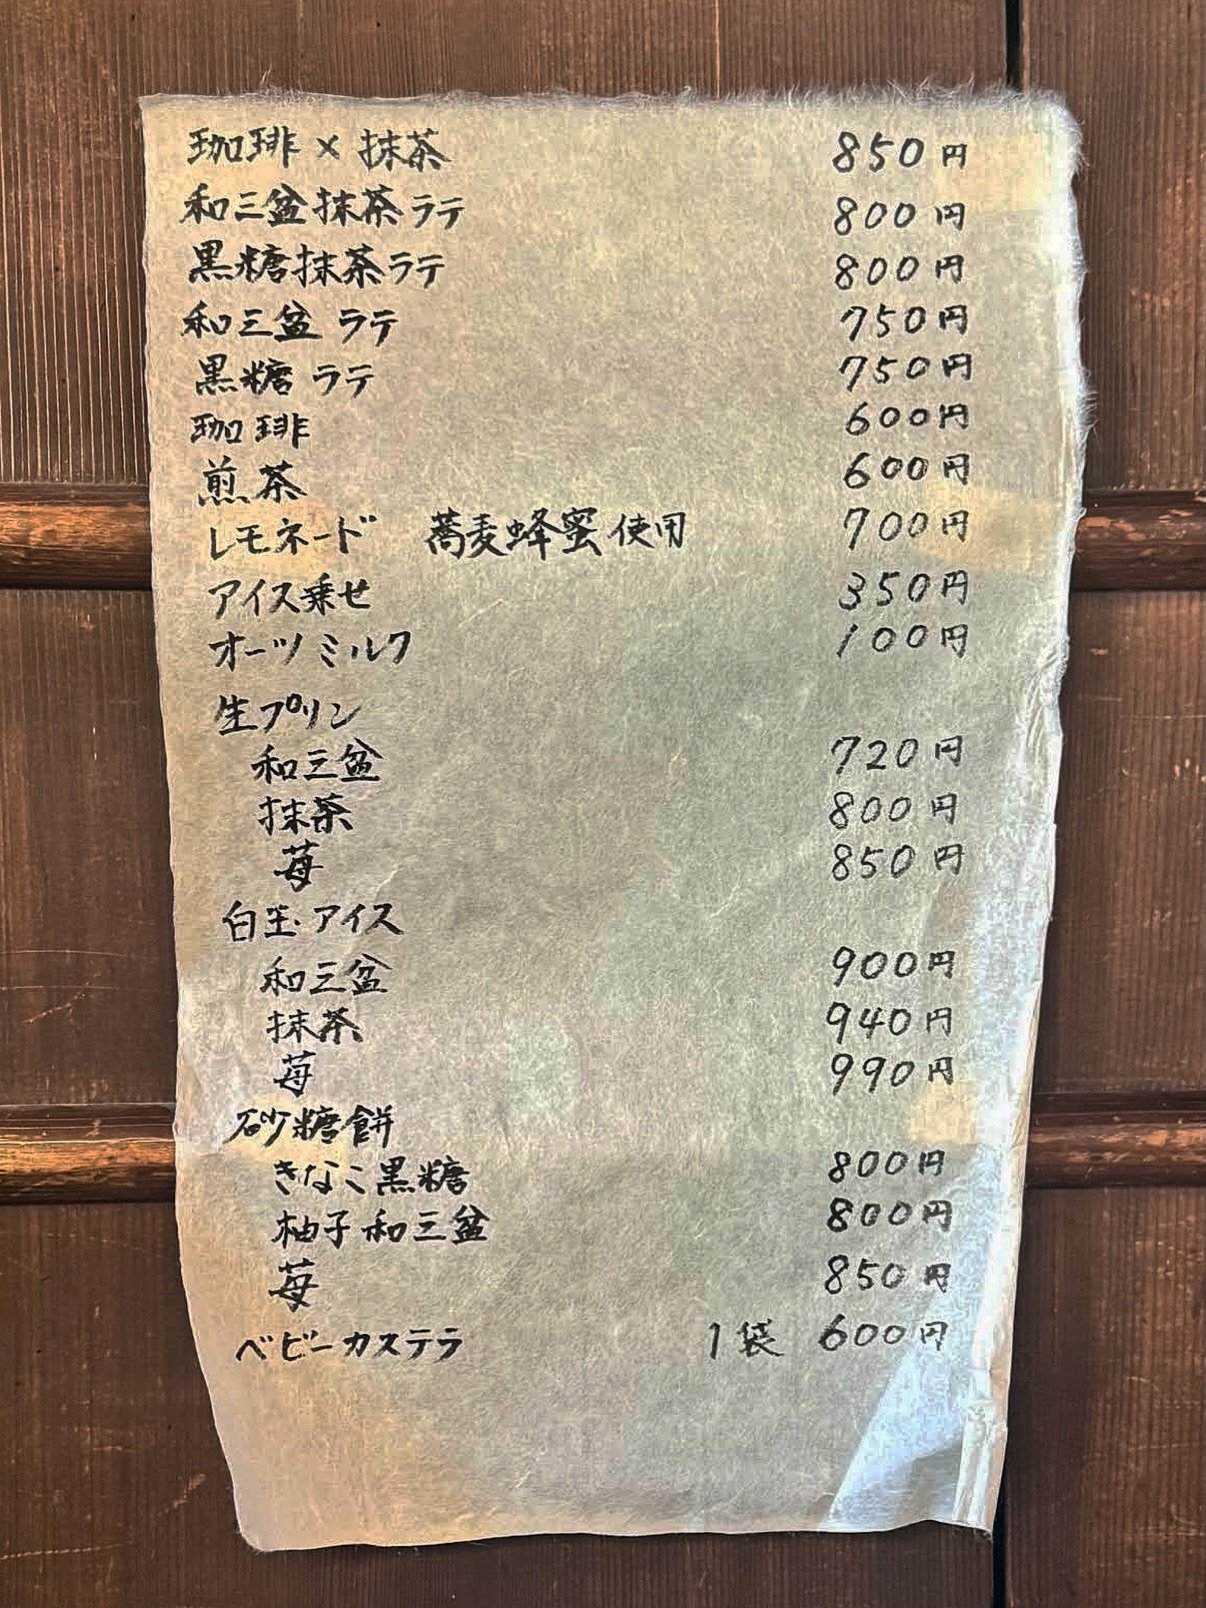 珈琲×抹茶 850円
和三盆抹茶ラテ 800円
黒糖抹茶ラテ 800円
和三盆ラテ 750円
黒糖ラテ 750円
珈琲 600円
煎茶 600円
レモネード 蕎麦蜂蜜使用 700円
アイス乗せ 350円
オーツミルク 100円
生プリン
和三盆 720円
抹茶 800円
苺 850円
白玉・アイス
和三盆 900円
抹茶 940円
苺 990円
砂糖餅
きなこ黒糖 800円
柚子和三盆 800円
苺 850円
ベビーカステラ 1袋 600円